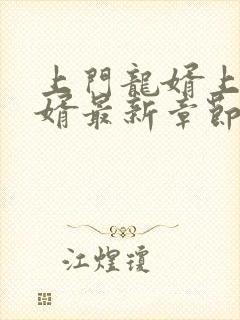 上門龍婿上
婿最新章節
江煌瓊